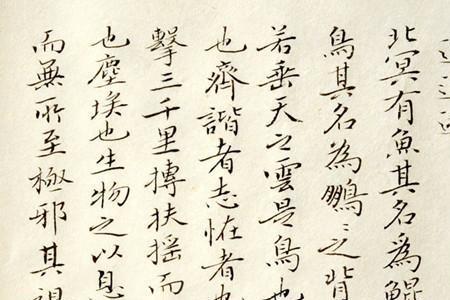 北冥有魚其名為鯤
鳥其名為鵬鵬之背
若垂天之雲是鳥也
也齊諧者志怪者也
擊三千里摶扶搖而
也塵埃也生物之以息
而無所至極邪其視